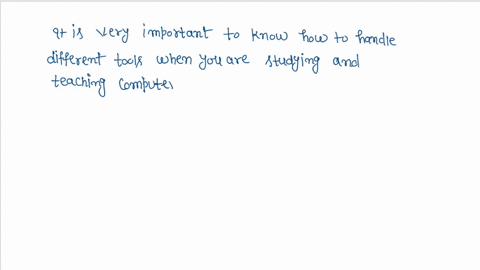 It is very important to know how to handle
different tools when you are studying and
teaching computer